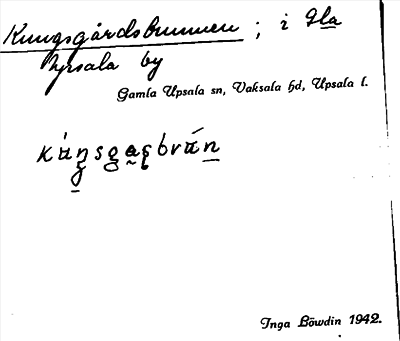 Kungsgårdsbrunnen; i Gla
Upsala by
Gamla Upsala sn, Vaksala hd, Upsala l.
Inga Löwdin 1942.